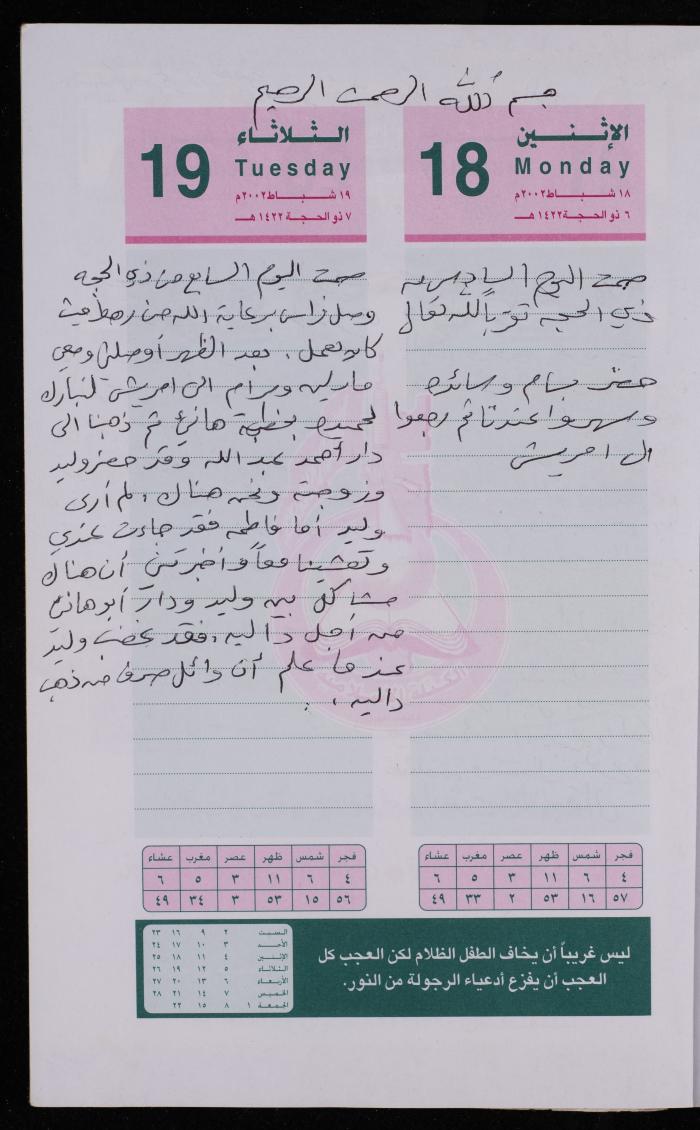 بسم الله الرحمن الرحيم
الإثنين
18
Monday
١٨ شباط ٢٠٠٢م
٦ ذو الحجة ١٤٢٢هـ
صمت اليوم السادس من
ذي الحجه تقرباً لله تعالى
حضر بسام وسائده
وسهروا عندنا ثم رجعوا
الى امريش
فجر شمس ظهر عصر مغرب عشاء
٤ ٦ ١١ ٣ ٥ ٦
٥٧ ١٦ ٥٣ ٢ ٣٣ ٤٩
الثلاثاء
19
Tuesday
١٩ شباط ٢٠٠٢م
٧ ذو الحجة ١٤٢٢هـ
صمت اليوم السابع من ذي الحجه
وصل فراس برعاية الله من رهط حيث
كان يعمل. بعد الظهر أوصلني ومعي
مارليه ومرام الى امريش لنبارك
لحميده بخطبة هانئ ثم ذهبنا الى
دار أحمد عبد الله وقد حضر وليد
وزوجته ونحن هناك. لم أرى
وليد أما فاطمه فقد جاءت عندي
وتعشينا معاً وأخبرتني أن هناك
مشاكل بين وليد ودار أبو هانئ
من أجل داليه، فقد غضب وليد
عندما علم أن وائل صرف من ذهب
داليه.
فجر شمس ظهر عصر مغرب عشاء
٤ ٦ ١١ ٣ ٥ ٦
٥٦ ١٥ ٥٣ ٣ ٣٤ ٤٩
ليس غريباً أن يخاف الطفل الظلام لكن العجب كل
العجب أن يفزع أدعياء الرجولة من النور.
السبت ٢ ٩ ١٦ ٢٣
الأحد ٣ ١٠ ١٧ ٢٤
الإثنين ٤ ١١ ١٨ ٢٥
الثلاثاء ٥ ١٢ ١٩ ٢٦
الأربعاء ٦ ١٣ ٢٠ ٢٧
الخميس ٧ ١٤ ٢١ ٢٨
الجمعة ١ ٨ ١٥ ٢٢